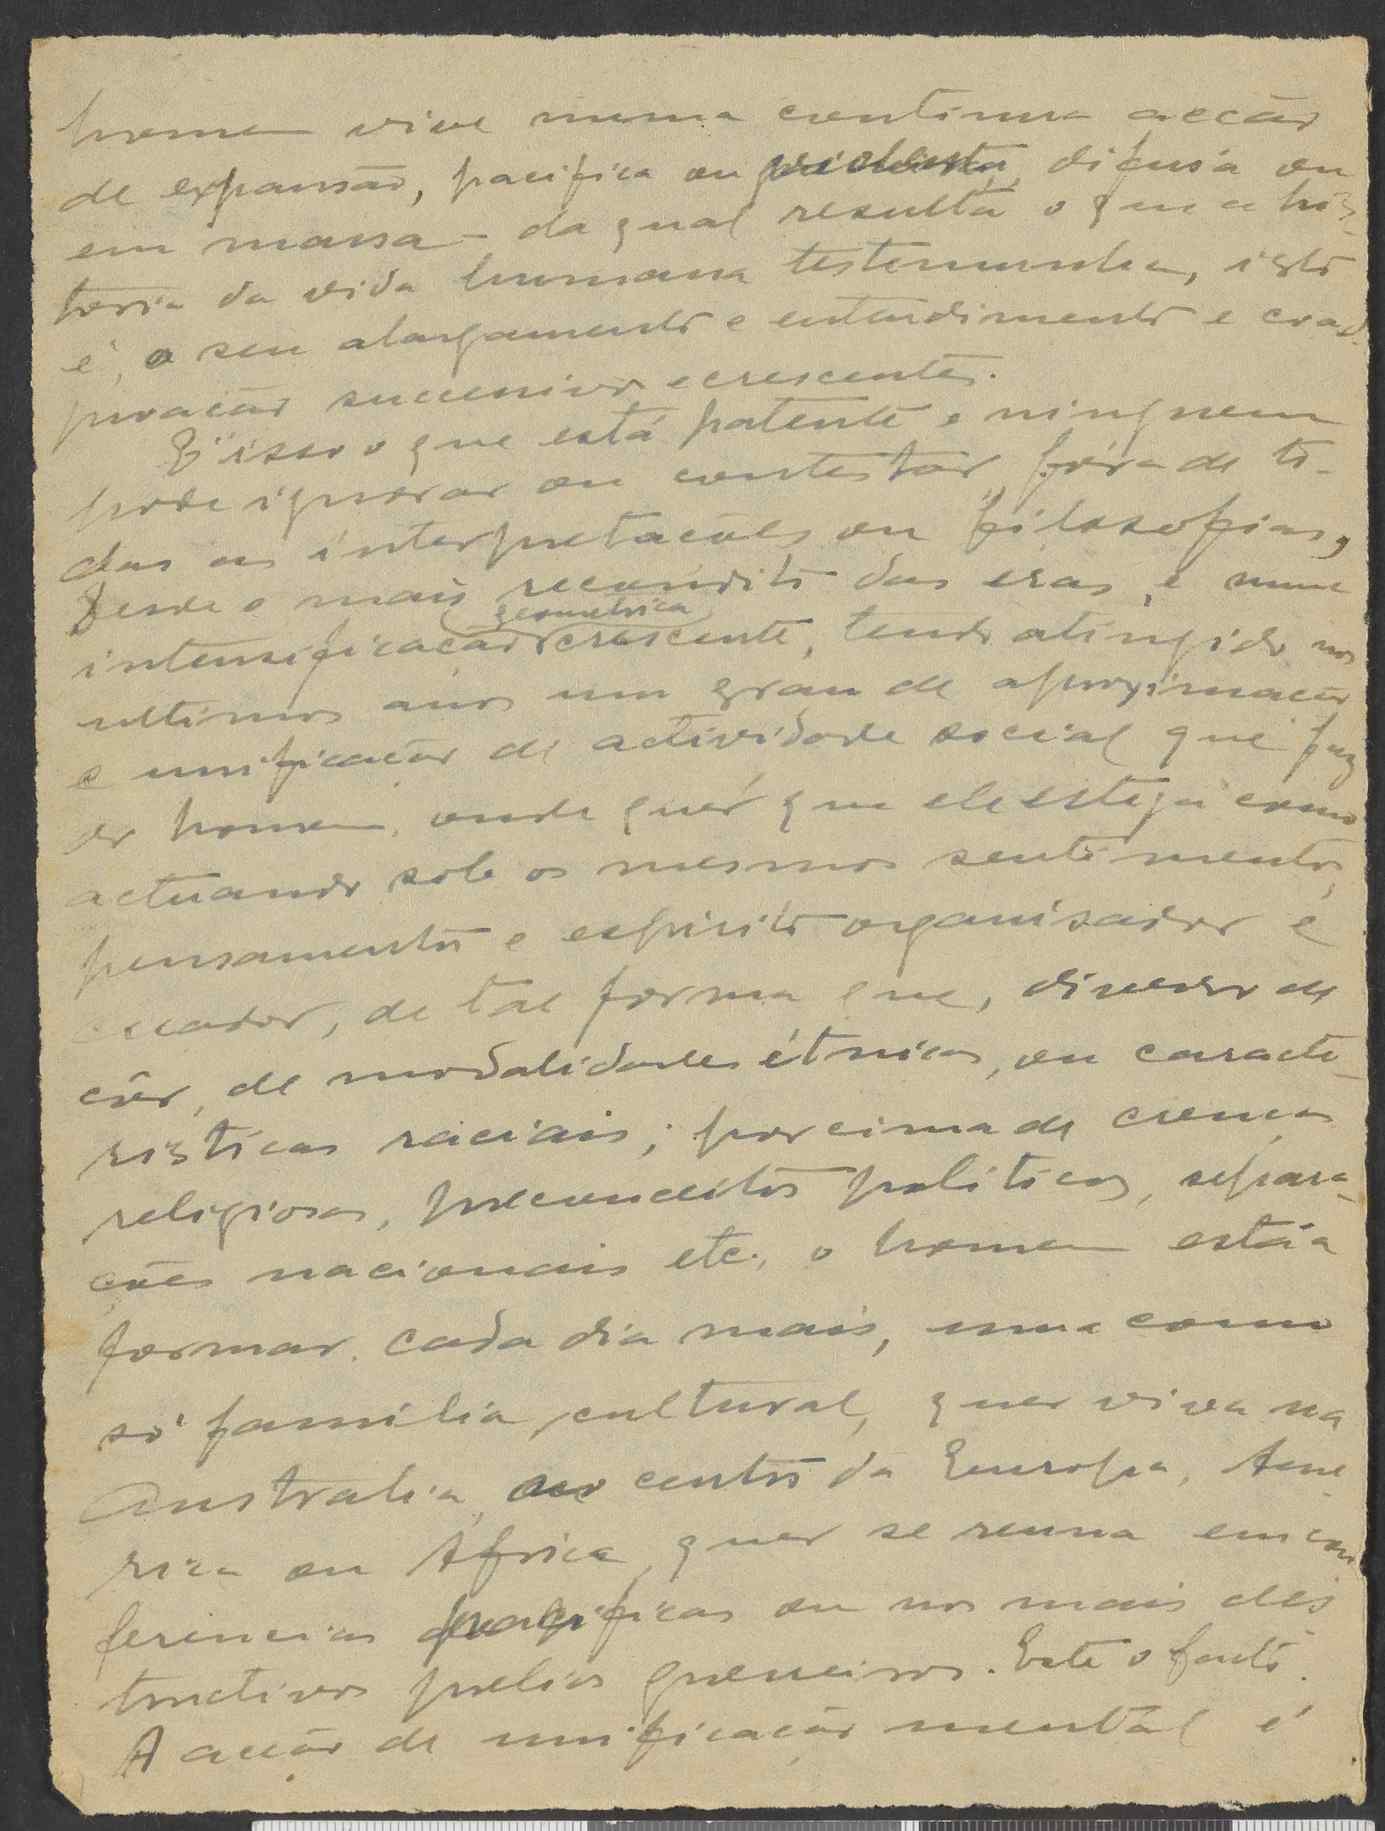 homem vive numa continua acção
de expansão, pacifica ou violenta, difusa ou
em massa – da qual resulta o que a his-
toria da vida humana testemunha, isto
é, o seu alargamento e entendimento e coad-
juvação successivos e crescentes.
E' isso o que está patente e ninguem
pode ignorar ou contestar, fóra de to-
das as interpretações ou filosofias,
Desde o mais recondito das eras, e numa
intensificação geometrica crescente, tendo atingido nos
ultimos anos um grau de aproximação
e unificação de actividade social que faz
do homem, onde quér que ele esteja como
actuando sob os mesmos sentimentos,
pensamentos e espirito organisador e
creador, de tal forma que, diverso de
côr, de modalidades étnicas, ou caracte-
risticas raciais; por cima de crenças
religiosas, preconceitos politicos, separa-
ções nacionais etc., o homem está a
formar, cada dia mais, uma como
só familia cultural, quer viva na
Australia, no centro da Europa, Ame-
rica ou África, quer se reuna em con
ferencias pacificas ou nos mais des
tructivos prelios guerreiros. Este o facto.
A acção de unificação mental é